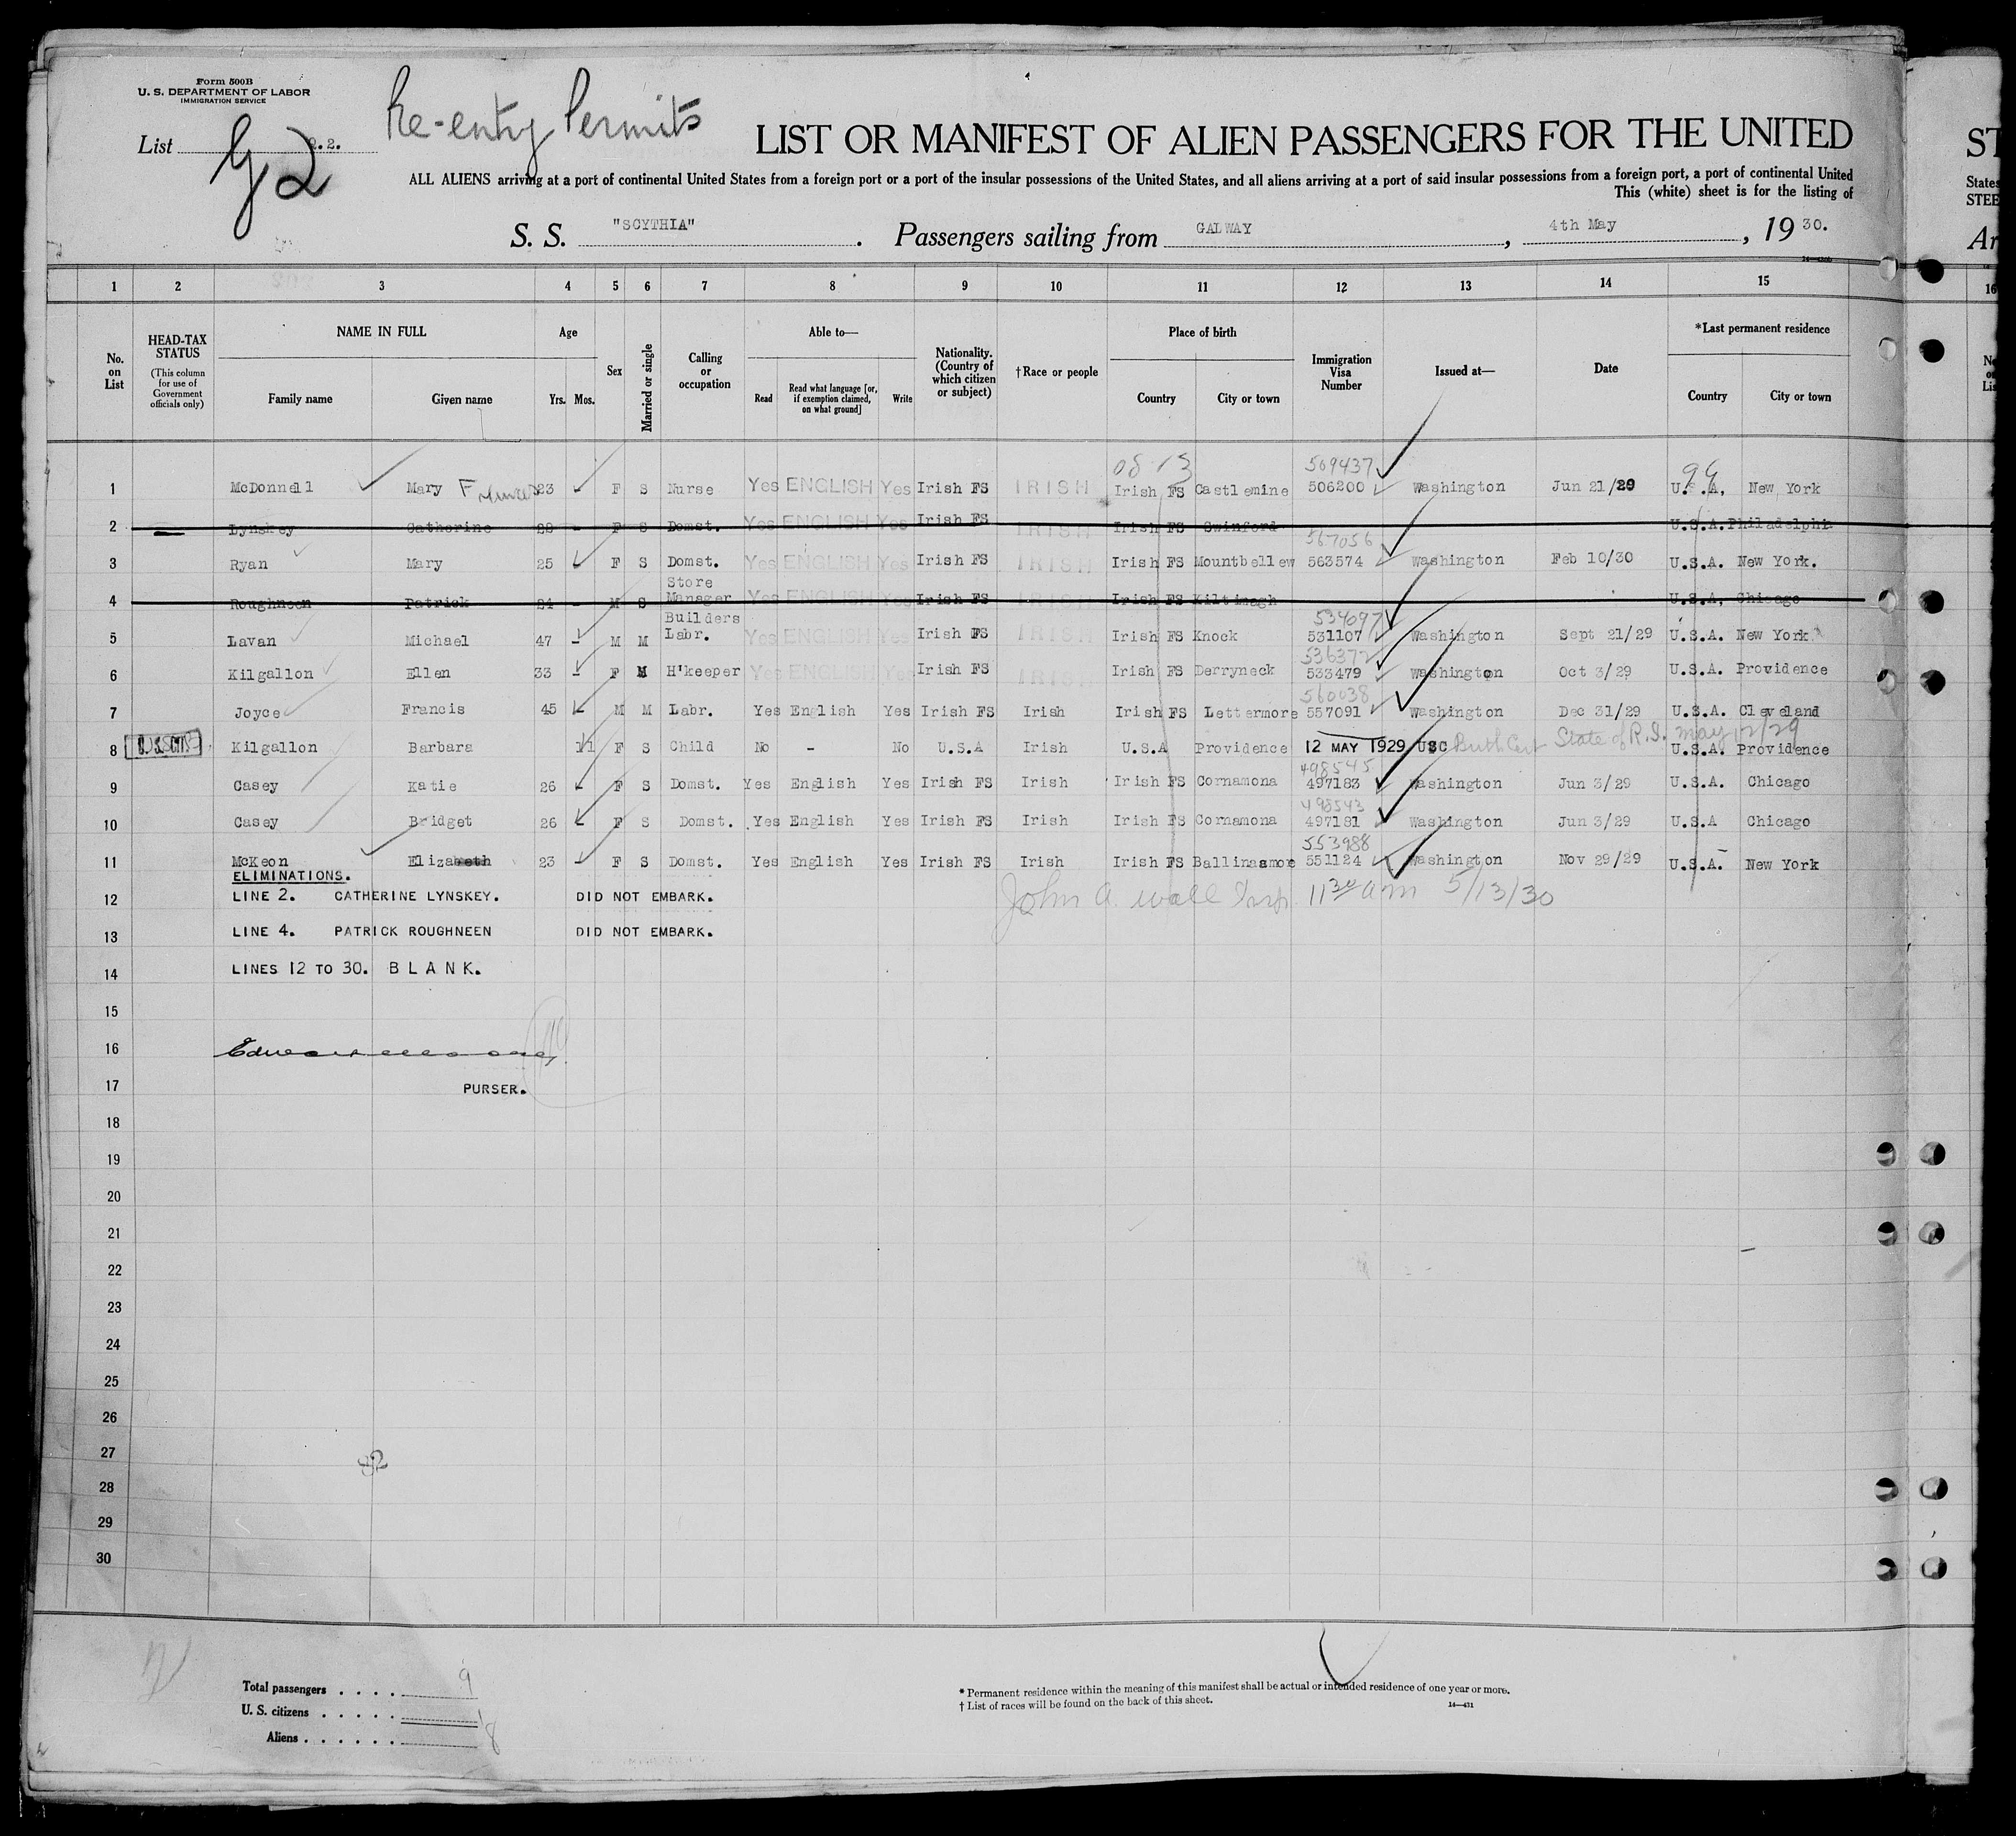 Form 500B
U. S. DEPARTMENT OF LABOR
IMMIGRATION SERVICE
Re-entry Permits
List 2.2.
G2
LIST OR MANIFEST OF ALIEN PASSENGERS FOR THE UNITED
ST
ALL ALIENS arriving at a port of continental United States from a foreign port or a port of the insular possessions of the United States, and all aliens arriving at a port of said insular possessions from a foreign port, a port of continental United
States
This (white) sheet is for the listing of
STEE
S. S. "SCYTHIA". Passengers sailing from GALWAY, 4th May, 1930.
Ar
1 2 3 4 5 6 7 8 9 10 11 12 13 14 15
16
No. on List
HEAD-TAX STATUS
(This column for use of Government officials only)
NAME IN FULL
Family name Given name
Age
Yrs. Mos.
Sex
Married or single
Calling or occupation
Able to—
Read Read what language [or, if exemption claimed, on what ground] Write
Nationality. (Country of which citizen or subject)
†Race or people
Place of birth
Country City or town
Immigration Visa Number
Issued at—
Date
*Last permanent residence
Country City or town
08 13 509437 99
1 McDonnell Mary Frances 23 - F S Nurse Yes ENGLISH Yes Irish FS IRISH Irish FS Castlemine 506200 Washington Jun 21/29 U.S.A, New York
2 Lynskey Catherine 29 - F S Domst. Yes ENGLISH Yes Irish FS IRISH Irish FS Swinford U.S.A. Philadelphi
567056
3 Ryan Mary 25 - F S Domst. Yes ENGLISH Yes Irish FS IRISH Irish FS Mountbellew 563574 Washington Feb 10/30 U.S.A. New York.
4 Roughneen Patrick 24 - M S Store Manager Yes ENGLISH Yes Irish FS IRISH Irish FS Kiltimagh U.S.A, Chicago
534097
5 Lavan Michael 47 - M M Builders Labr. Yes ENGLISH Yes Irish FS IRISH Irish FS Knock 531107 Washington Sept 21/29 U.S.A. New York
536372
6 Kilgallon Ellen 33 - F M H'keeper Yes ENGLISH Yes Irish FS IRISH Irish FS Derryneck 533479 Washington Oct 3/29 U.S.A. Providence
560038
7 Joyce Francis 45 - M M Labr. Yes English Yes Irish FS Irish Irish FS Lettermore 557091 Washington Dec 31/29 U.S.A. Cleveland
8 U.S.CIT. Kilgallon Barbara 11 F S Child No - No U.S.A Irish U.S.A Providence 12 MAY 1929 USC Birth Cert State of R.I. May 12/29 U.S.A. Providence
498545
9 Casey Katie 26 - F S Domst. Yes English Yes Irish FS Irish Irish FS Cornamona 497183 Washington Jun 3/29 U.S.A. Chicago
498543
10 Casey Bridget 26 - F S Domst. Yes English Yes Irish FS Irish Irish FS Cornamona 497181 Washington Jun 3/29 U.S.A Chicago
553988
11 McKeon Elizabeth 23 - F S Domst. Yes English Yes Irish FS Irish Irish FS Ballinamore 551124 Washington Nov 29/29 U.S.A. New York
ELIMINATIONS.
12 LINE 2. CATHERINE LYNSKEY. DID NOT EMBARK. John A. Wall Insp. 11 30 am 5/13/30
13 LINE 4. PATRICK ROUGHNEEN DID NOT EMBARK.
14 LINES 12 TO 30. BLANK.
15
16 Edward
17 PURSER.
18
19
20
21
22
23
24
25
26
27
82
28
29
30
Total passengers . . . . 9
U. S. citizens . . . . . 1
Aliens . . . . . . 8
* Permanent residence within the meaning of this manifest shall be actual or intended residence of one year or more.
† List of races will be found on the back of this sheet.
14—431